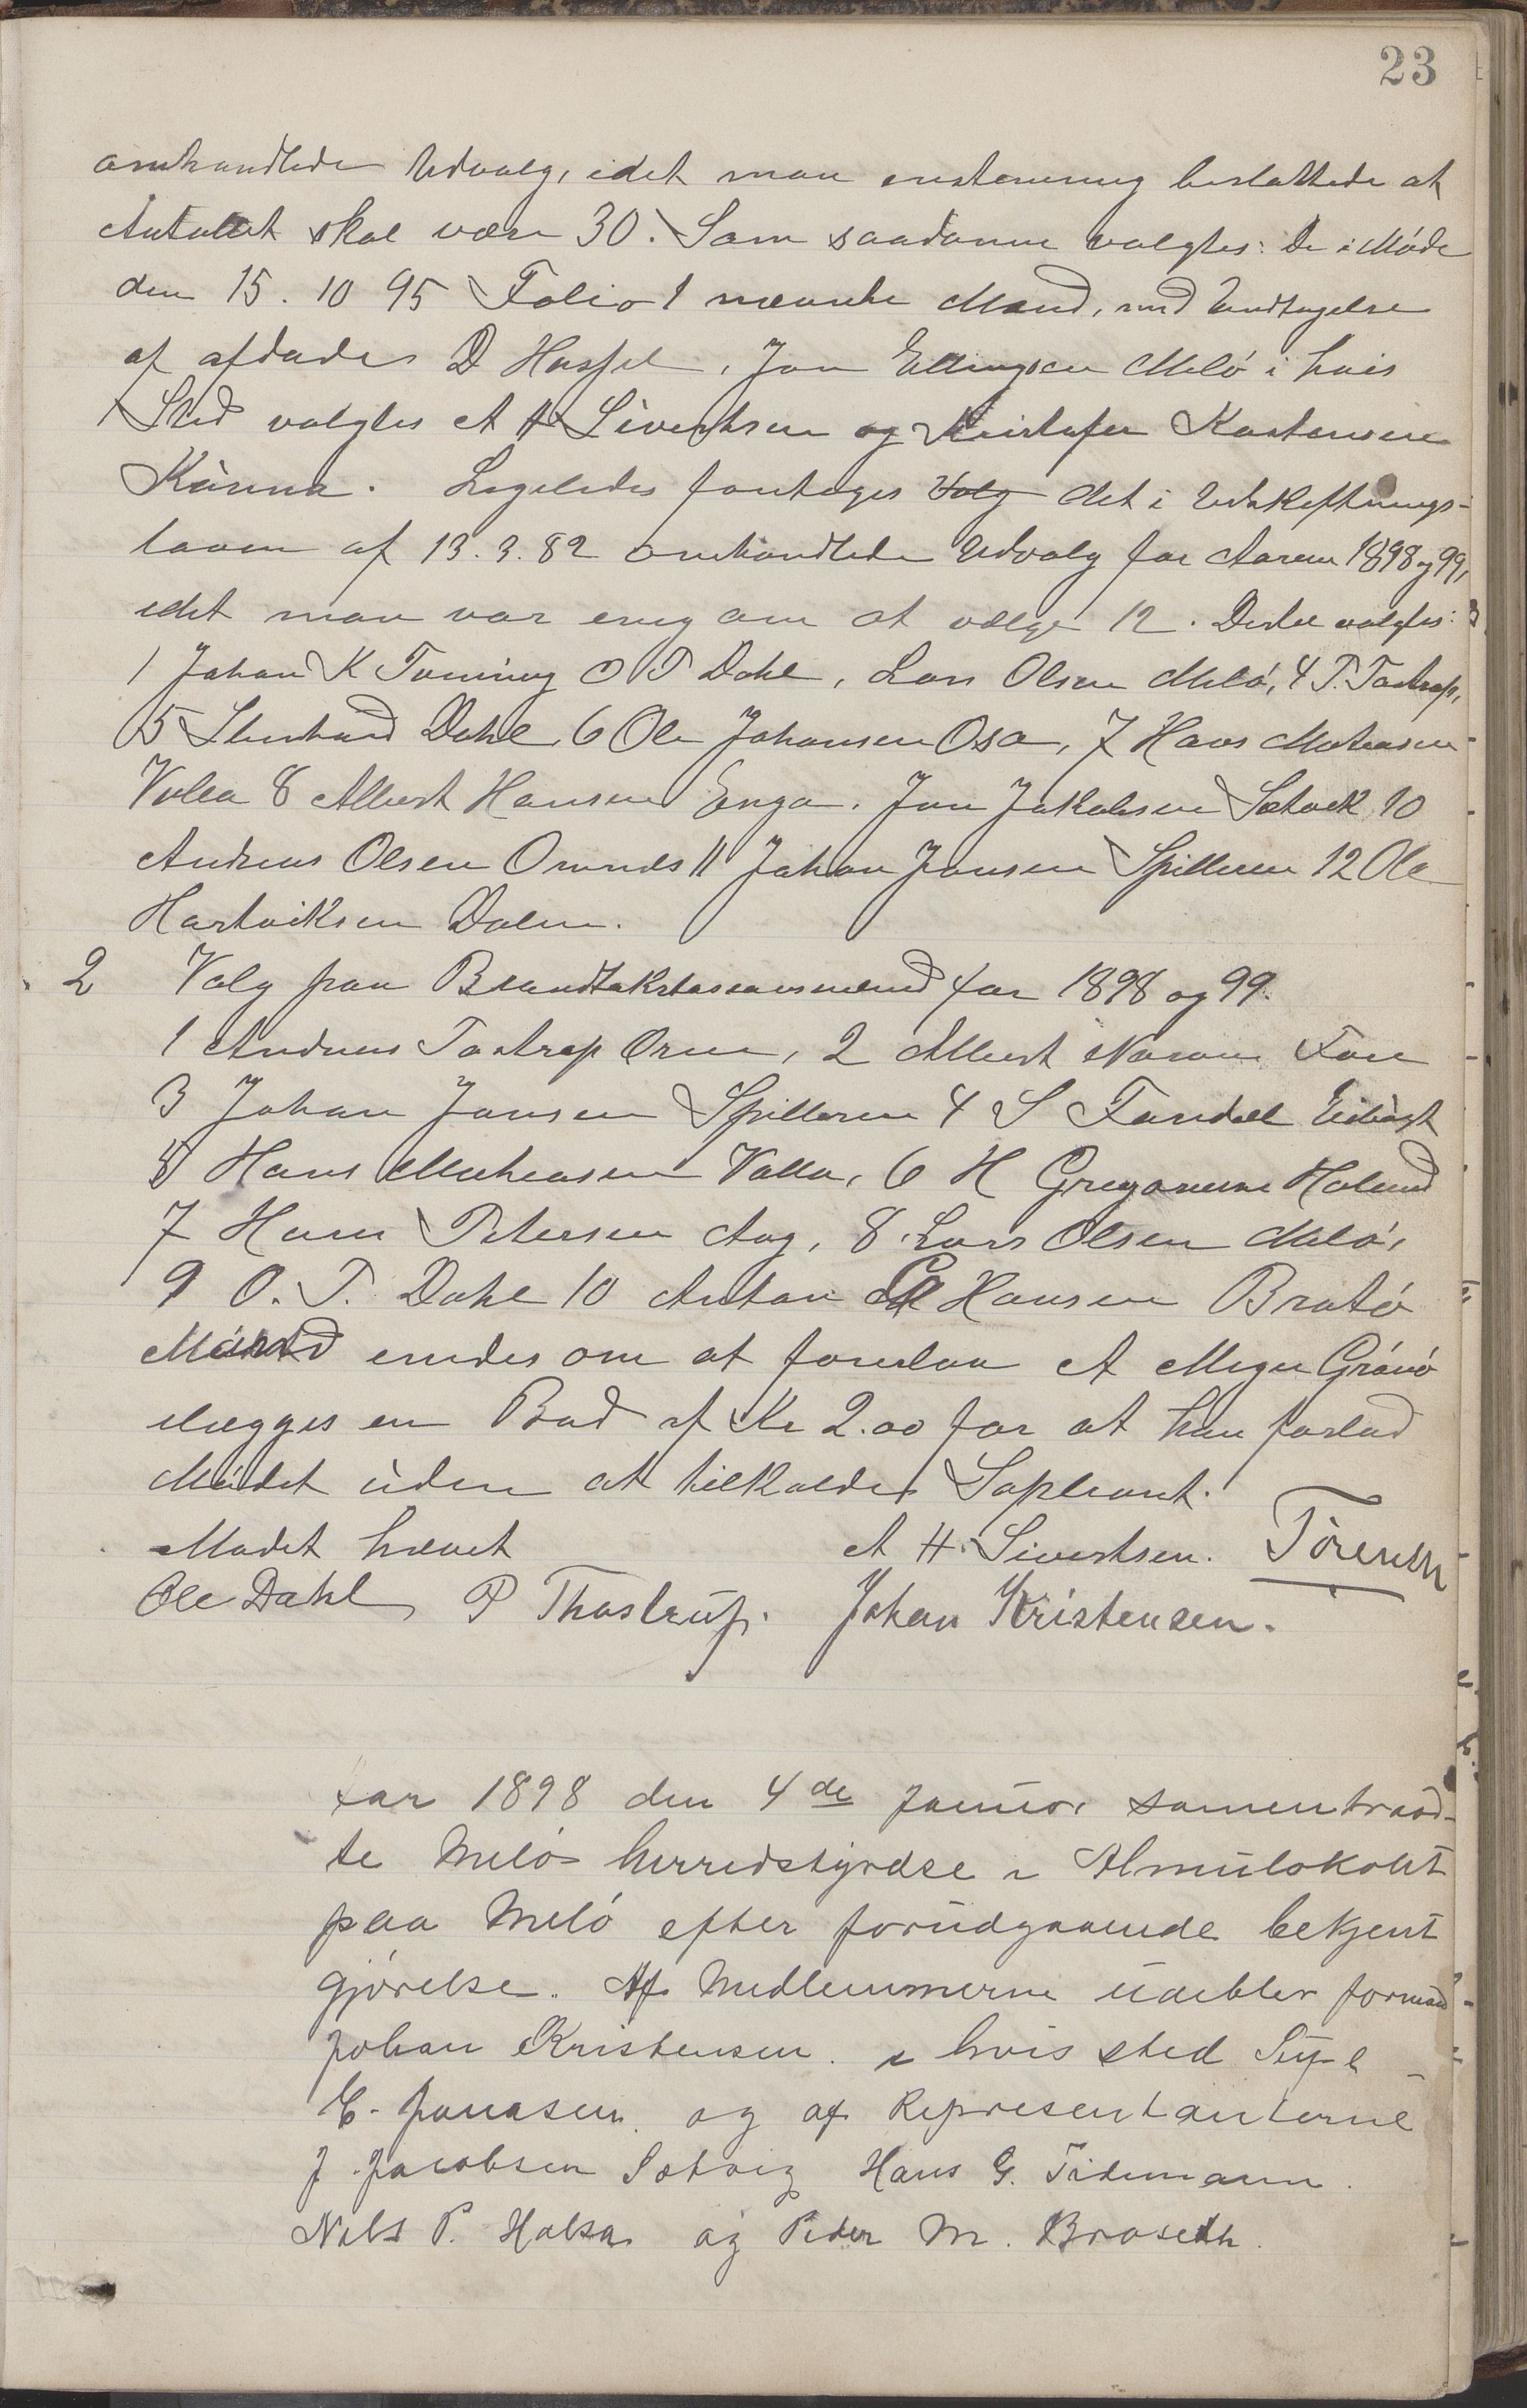 23
omhandlede Udvalg, idet man enstemmig besluttede at
Antallet skal være 30. Som saadanne valgtes: De i Møde
den 15. 10 95 Folio 1 nævnte Mænd, med Undtagelse
af afdøde D Hassel, Jon Ellingsen Melö i hvis
Sted valgtes A H Sivertsen og Kristofer Karstensen
Kunna. Ligeledes foretoges Valg det i Udskiftnings-
loven af 13. 3. 82 omhandlede Udvalg for Aarene 1898 og 99,
idet man var enig om at vælge 12. Dertil valgtes:
1 Johan K Torrning O T Dahl, Lars Olsen Melö, 4 P. Tostrup,
5 Dahl, 6 Ole Johansen Osa, 7 Hans Matheasen
Valla 8 Albert Hansen Enga. Jon Jakobsen Sætvik 10
Andreas Olsen Ornnes 11 Johan Jonsen Spilleren 12 Ole
Hartviksen Dalen.
2 Valg paa Brandtakstationsmænd for 1898 og 99.
1 Andreas Tostrup Ornes, 2 Albert Fore
3 Johan Jonsen Spilleren 4 S Fondal
5 Hans Matheasen Valla, 6 H Gregersen Holand
7 Hans Petersen Aag, 8 Lars Olsen Melö,
9 O. T. Dahl 10 Anton Hansen Bratö
enedes om at foreslaa A Meyer Grönö
ilægges en Bod af Kr 2.00 for at han forlod
Mödet uden at tilkalde Supleant.
Mødet hævet A H. Sivertsen.
Ole Dahl P Thostrup. Johan Kristensen.
Aar 1898 den 4de Januar sammentraad-
te Melö herredstyrelse i Almulokalet
paa Melö efter forudgaaende bekjent
gjörelse. Af Medlemmerne udeblev formand
Johan Kristensen. i hvis sted Supl
E. Jonasen og af Representanterne
J. Jacobsen Sætvig Hans G. Tidemann.
Nils P. Halsa og Peder M. Broseth.